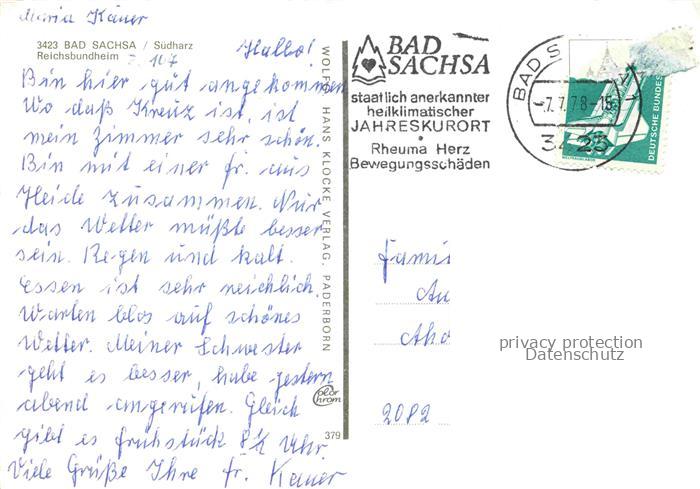 Maria Kauer
3423 BAD SACHSA / Südharz
Reichsbundheim Z. 107
Hallo!
Bin hier gut angekommen
Wo daß Kreuz ist, ist
mein Zimmer sehr schön.
Bin mit einer fr. aus
Heide zusammen. Nur
das Wetter müßte besser
sein. Regen und kalt.
Essen ist sehr reichlich.
Warten blos auf schönes
Wetter. Meiner Schwester
geht es besser, habe gestern
abend angerufen. Gleich
gibt es frühstück 8 1/2 Uhr.
Viele Grüße Ihre fr. Kauer
WOLFGANG HANS KLOCKE VERLAG, PADERBORN
379
BAD
SACHSA
staatlich anerkannter
heilklimatischer
JAHRESKURORT
Rheuma Herz
Bewegungsschäden
BAD S
-7.7.78-15
3423
DEUTSCHE BUNDES
Famil
Au
Aho
2082
privacy protection
Datenschutz